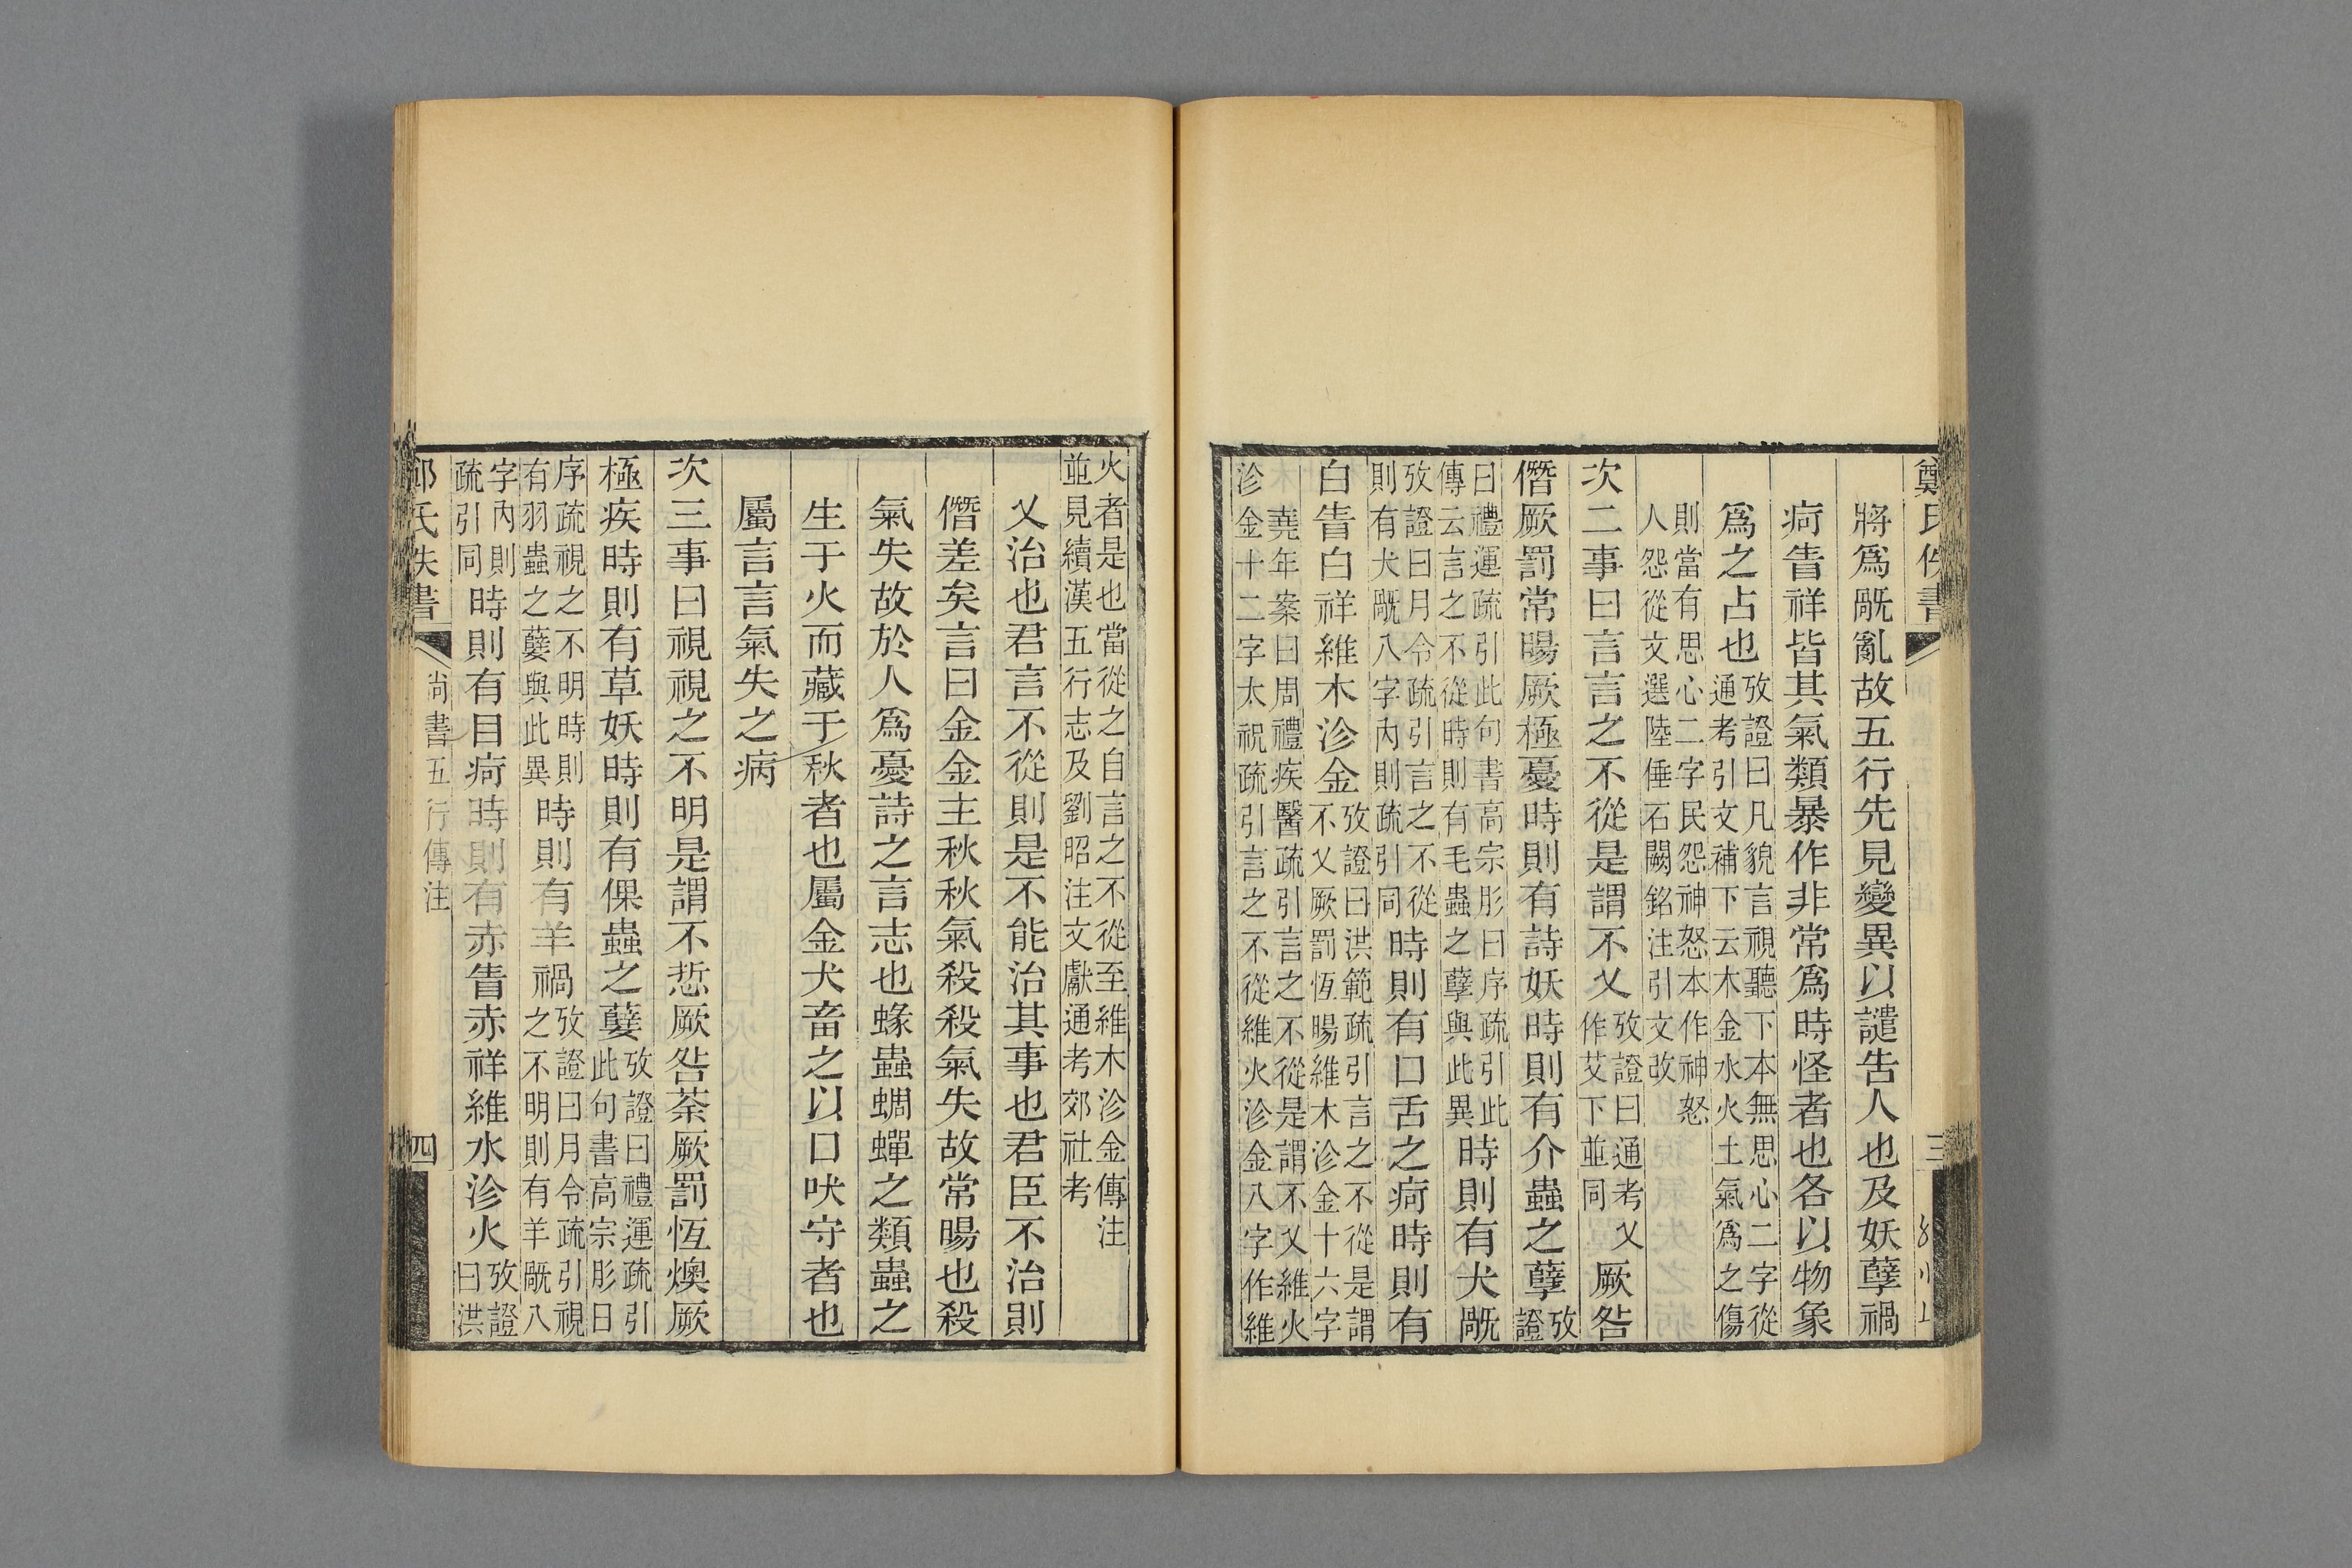 鄭氏佚書
三
將爲戬亂故五行先見變異以譴告人也及妖孽禍
痾眚祥皆其氣類暴作非常爲時怪者也各以物象
爲之占也攷證曰凡貌言視聽下本無思心二字從
通考引文補下云木金水火土氣爲之傷
則當有思心二字民怨神怒本作神怒
人怨從文選陸倕石闕銘注引文改
次二事曰言言之不從是謂不乂攷證曰通考乂
作艾下並同厥咎
僭厥罰常暘厥極憂時則有詩妖時則有介蟲之孽攷
證
曰禮運疏引此句書高宗肜日序疏引此
傳云言之不從時則有毛蟲之孽與此異時則有犬旤
攷證曰月令疏引言之不從
則有犬旤八字內則疏引同時則有口舌之痾時則有
白眚白祥維木沴金攷證曰洪範疏引言之不從是謂
不乂厥罰恆暘維木沴金十六字
堯年案曰周禮疾醫疏引言之不從是謂不乂維火
沴金十二字太祝疏引言之不從維火沴金八字作維
火者是也當從之自言之不從至維木沴金傳注
並見續漢五行志及劉昭注文獻通考郊社考
乂治也君言不從則是不能治其事也君臣不治則
僭差矣言曰金金主秋秋氣殺殺氣失故常暘也殺
氣失故於人爲憂詩之言志也蝝蟲蜩蟬之類蟲之
生于火而藏于秋者也屬金犬畜之以口吠守者也
屬言言氣失之病
次三事曰視視之不明是謂不悊厥咎荼厥罰恆燠厥
極疾時則有草妖時則有倮蟲之孽攷證曰禮運疏引
此句書高宗肜日
序疏視之不明時則
有羽蟲之孽與此異時則有羊禍攷證曰月令疏引視
之不明則有羊旤八
字內則
疏引同時則有目痾時則有赤眚赤祥維水沴火攷證
曰洪
尚書五行傳注
四